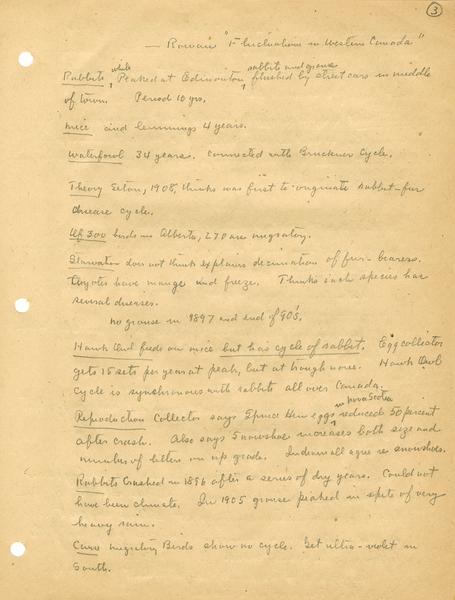 3
— Rowan "Fluctuations in Western Canada"
while rabbits and grouse
Rabbits Peaked at Edmonton, flushed by street cars in middle
of town. Period 10 yrs.
Mice and lemmings 4 years.
Waterfowl 34 years. Connected with Bruckner Cycle.
Theory Seton, 1908, thinks was first to originate rabbit-fur
disease cycle.
Of 300 birds in Alberta, 270 are migratory.
Starvation does not think explains decimation of fur-bearers.
Coyotes have mange and freeze. Thinks each species has
several diseases.
No grouse in 1897 and end of 90's.
Hawk Owl feeds on mice but has cycle of rabbit. Egg collector
gets 15 sets per year at peak, but at trough none. Hawk Owl
cycle is synchronous with rabbits all over Canada.
in Nova Scotia
Reproduction Collector says Spruce Hen eggs reduced 50 percent
after crash. Also says Snowshoe increases both size and
number of litters on up grade. Indians all agree re snowshoes.
Rabbits Crashed in 1896 after a series of dry years. Could not
have been climate. In 1905 grouse peaked in spite of very
heavy rain.
Cause migratory Birds show no cycle. Get ultra-violet in
South.